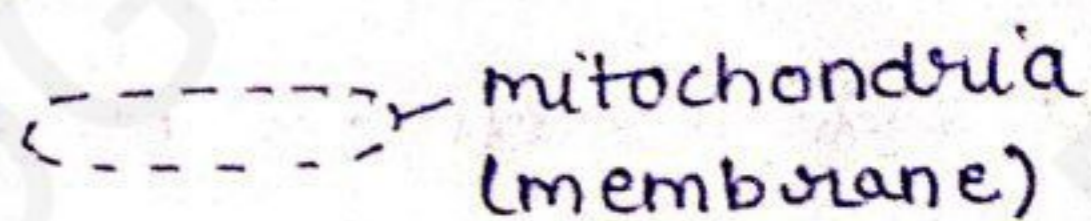 mitochondria
(membrane)